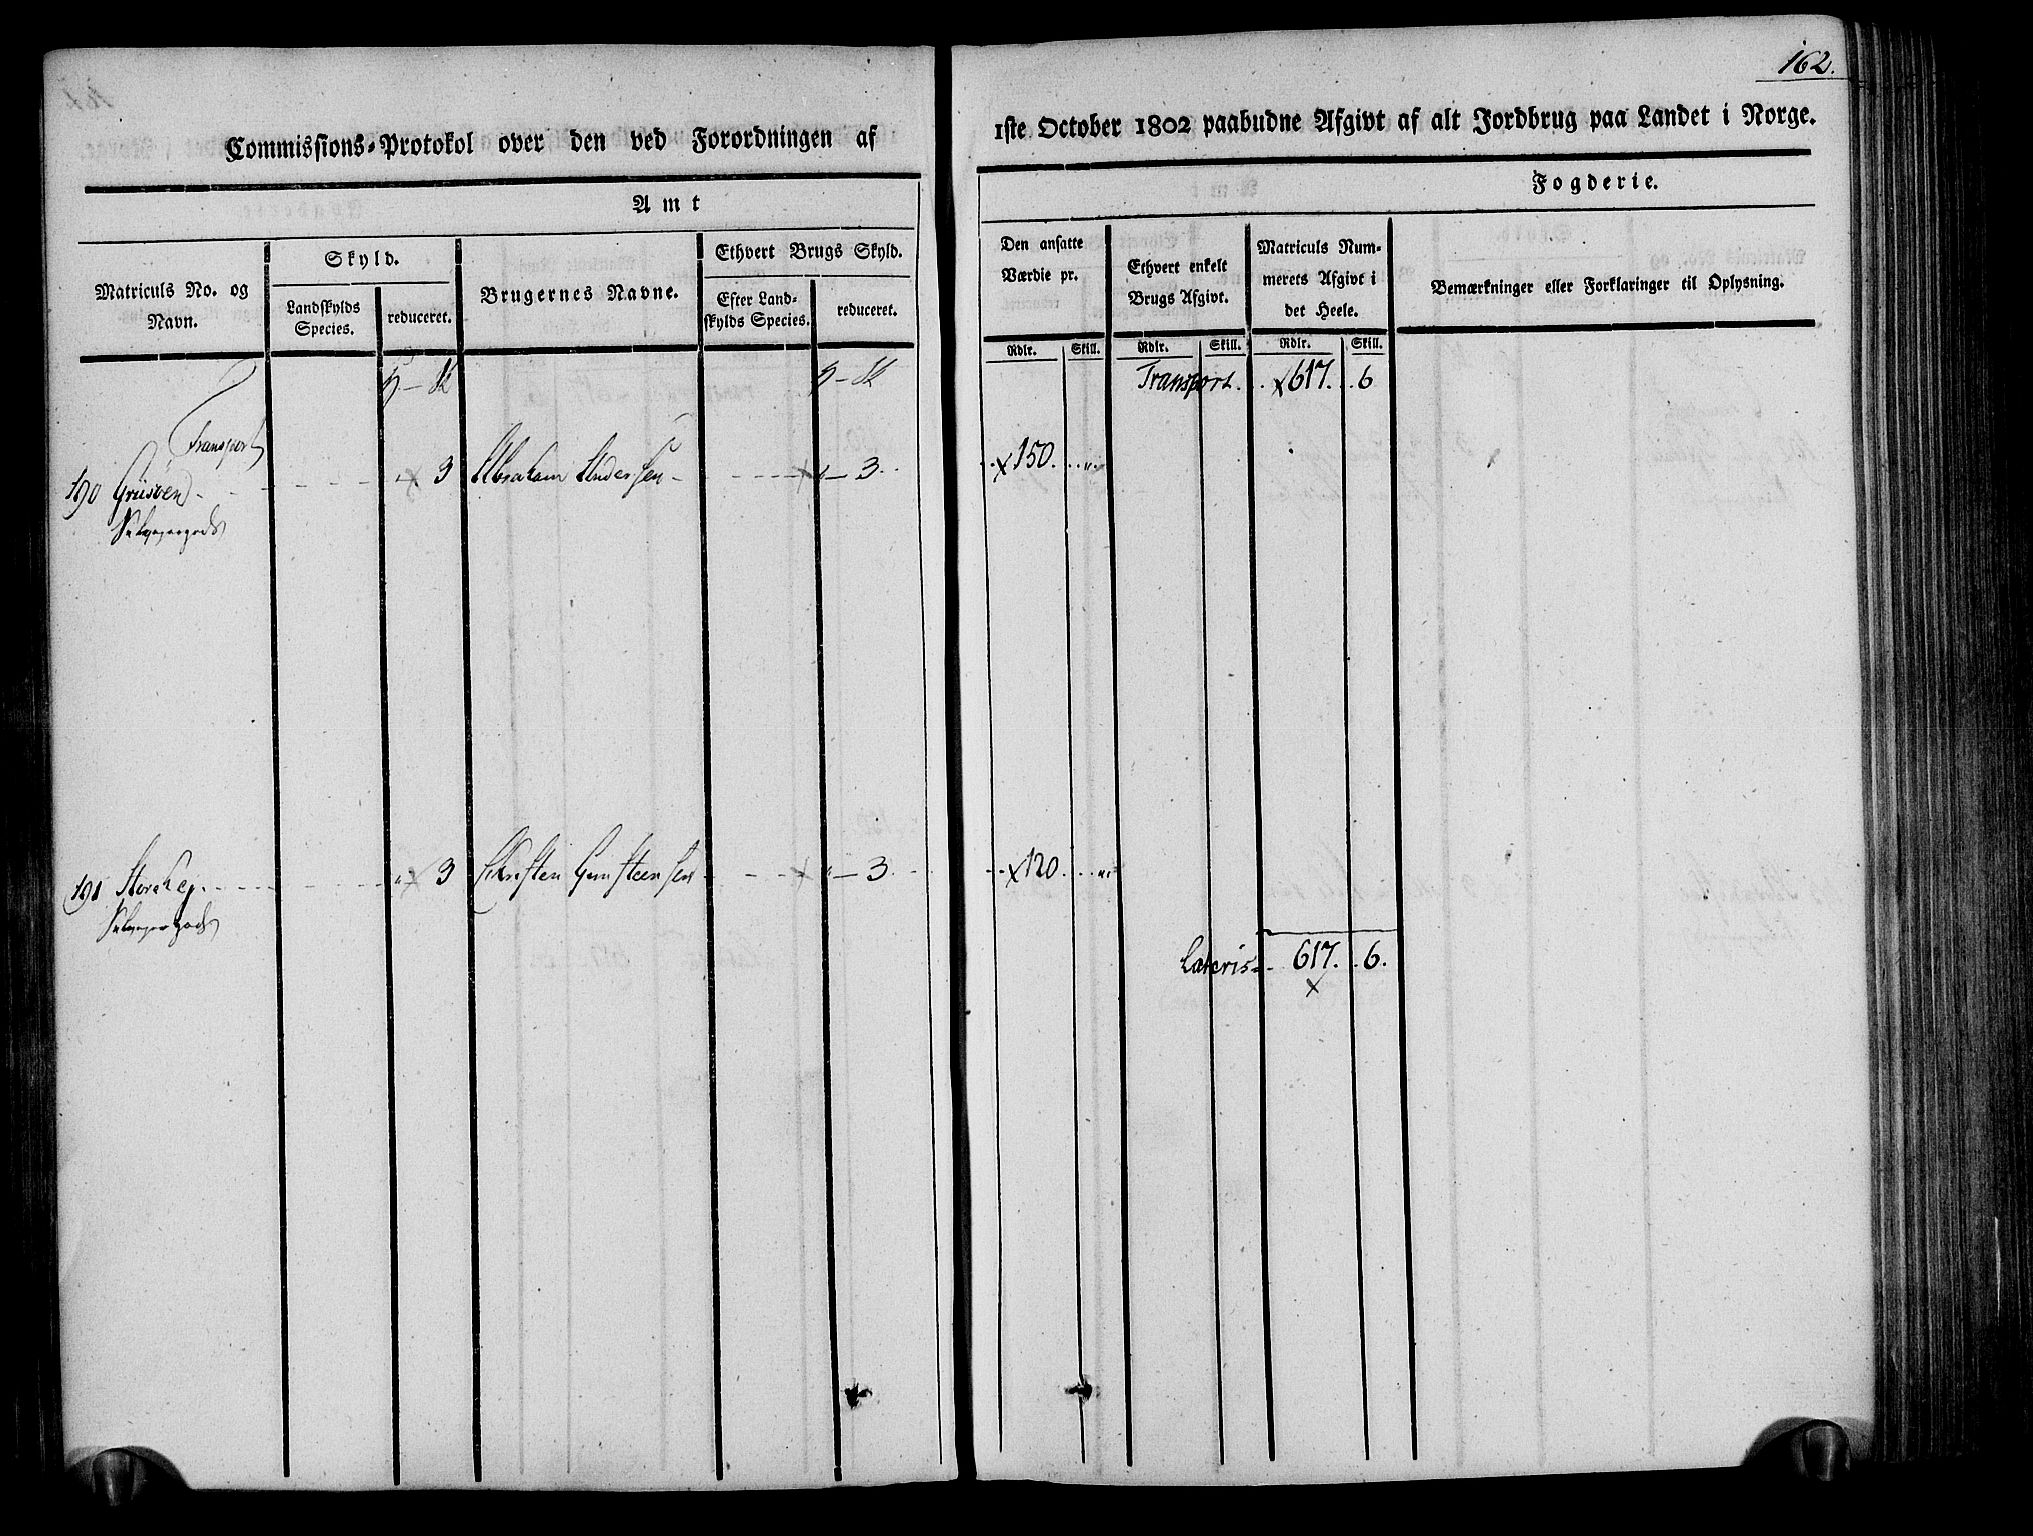 162.
Commissions-Protokol over den ved Forordningen af
1ste October 1802 paabudne Afgivt af alt Jordbrug paa Landet i Norge.
Amt
Fogderie.
Matriculs No. og Navn.
Skyld.
Landskylds Species.
reduceret.
Brugernes Navne.
Ethvert Brugs Skyld.
Efter Landskylds Species.
reduceret.
Den ansatte Værdie pr.
Ethvert enkelt Brugs Afgivt.
Matriculs Nummerets Afgivt i det Heele.
Bemærkninger eller Forklaringer til Oplysning.
Rdlr. Skill. Rdlr. Skill. Rdlr. Skill.
Transport
Transport. 617. 6
190 3 Abraham Andersen 3. 150.
Selveyergods
191 3 Christen Gunsteensen 3. 120.
Selveyergods
Lateris 617. 6.